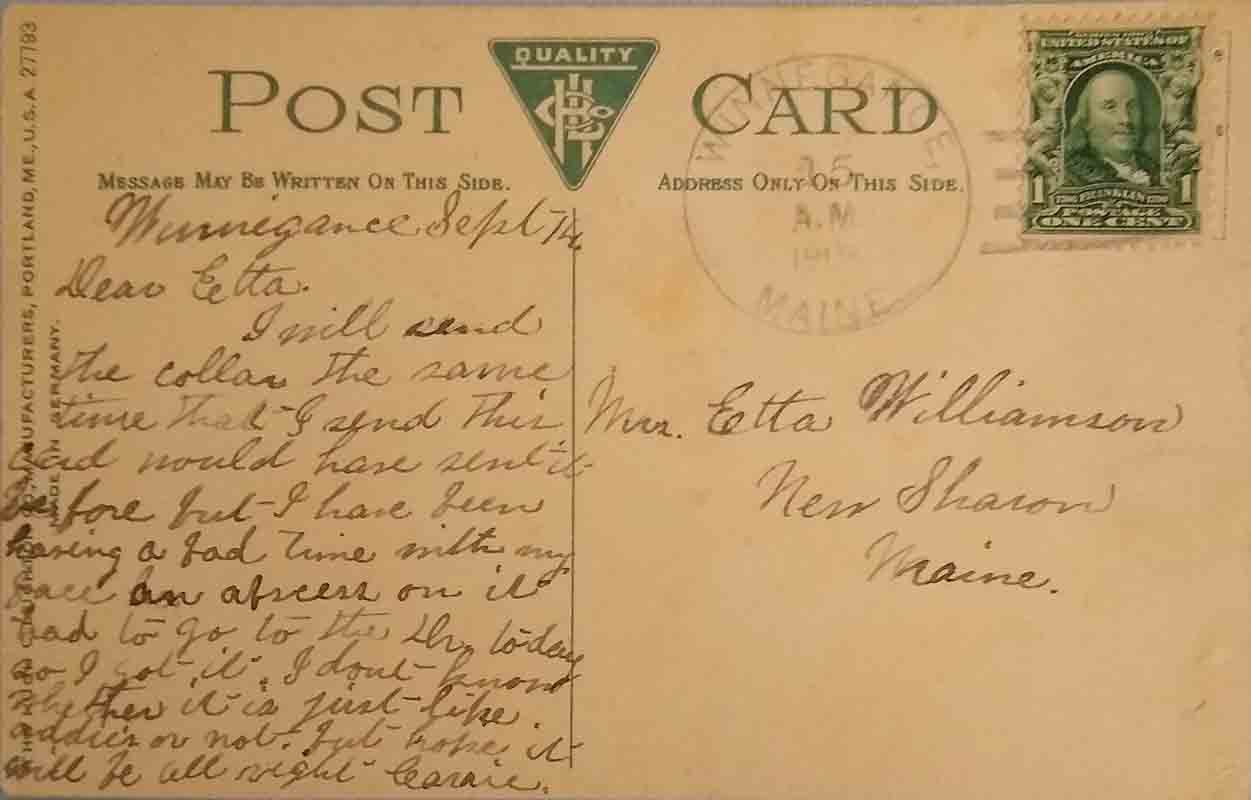 THE HUGH C. LEIGHTON CO., MANUFACTURERS, PORTLAND, ME., U.S.A. 27793
MADE IN GERMANY.
POST CARD
QUALITY
MESSAGE MAY BE WRITTEN ON THIS SIDE.
ADDRESS ONLY ON THIS SIDE.
WINNEGANCE,
15
A.M.
MAINE
SERIES 1902
UNITED STATES OF
AMERICA
1 FRANKLIN 1
POSTAGE
ONE CENT
Winnegance Sept 14
Dear Etta.
I will send
the collar the same
time that I send this
card would have sent it
before but I have been
having a bad time with my
face an abscess on it
had to go to the Dr. today
so I got it. I dont know
whether it is just like
Addies or not. but hope it
will be all right Carrie.
Mrs. Etta Williamson
New Sharon
Maine.